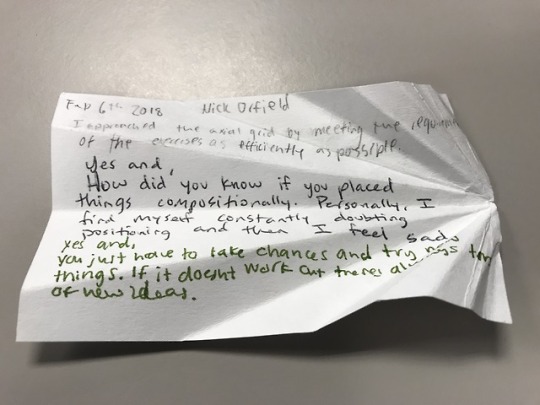 Feb 6th 2018 Nick Orfield
I approached the axial grid by meeting the
of the exercises as efficiently as possible.
Yes and,
How did you know if you placed
things compositionally. Personally, I
find myself constantly doubting
positioning and then I feel sad.
yes and,
you just have to take chances and try
things. If it doesnt work out theres
of new ideas.